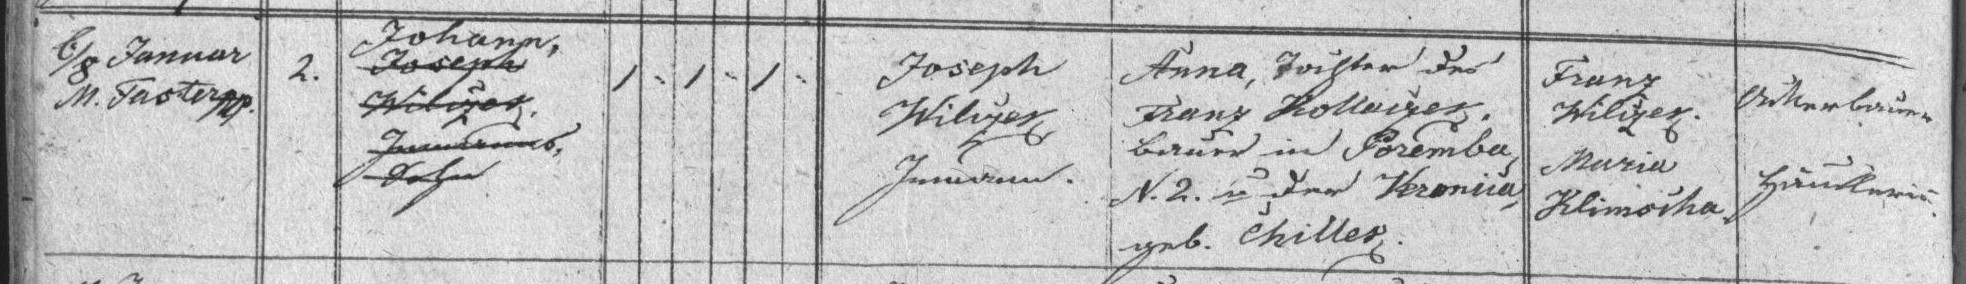 6/8 Januar
M. Fasterpp.
2.
Johann,
Joseph
Wiliżek.
Inmanns,
Sohn
1 - 1 - 1 -
Joseph
Wiliżek
Inmann.
Anna, Tochter des
Franz Kollaizek.
bauer in Poremba,
N. 2. u der Veronica,
geb. Chillek.
Franz
Wiliżek.
Maria
Klimoscha
Ackerbauer
Häuslerin.